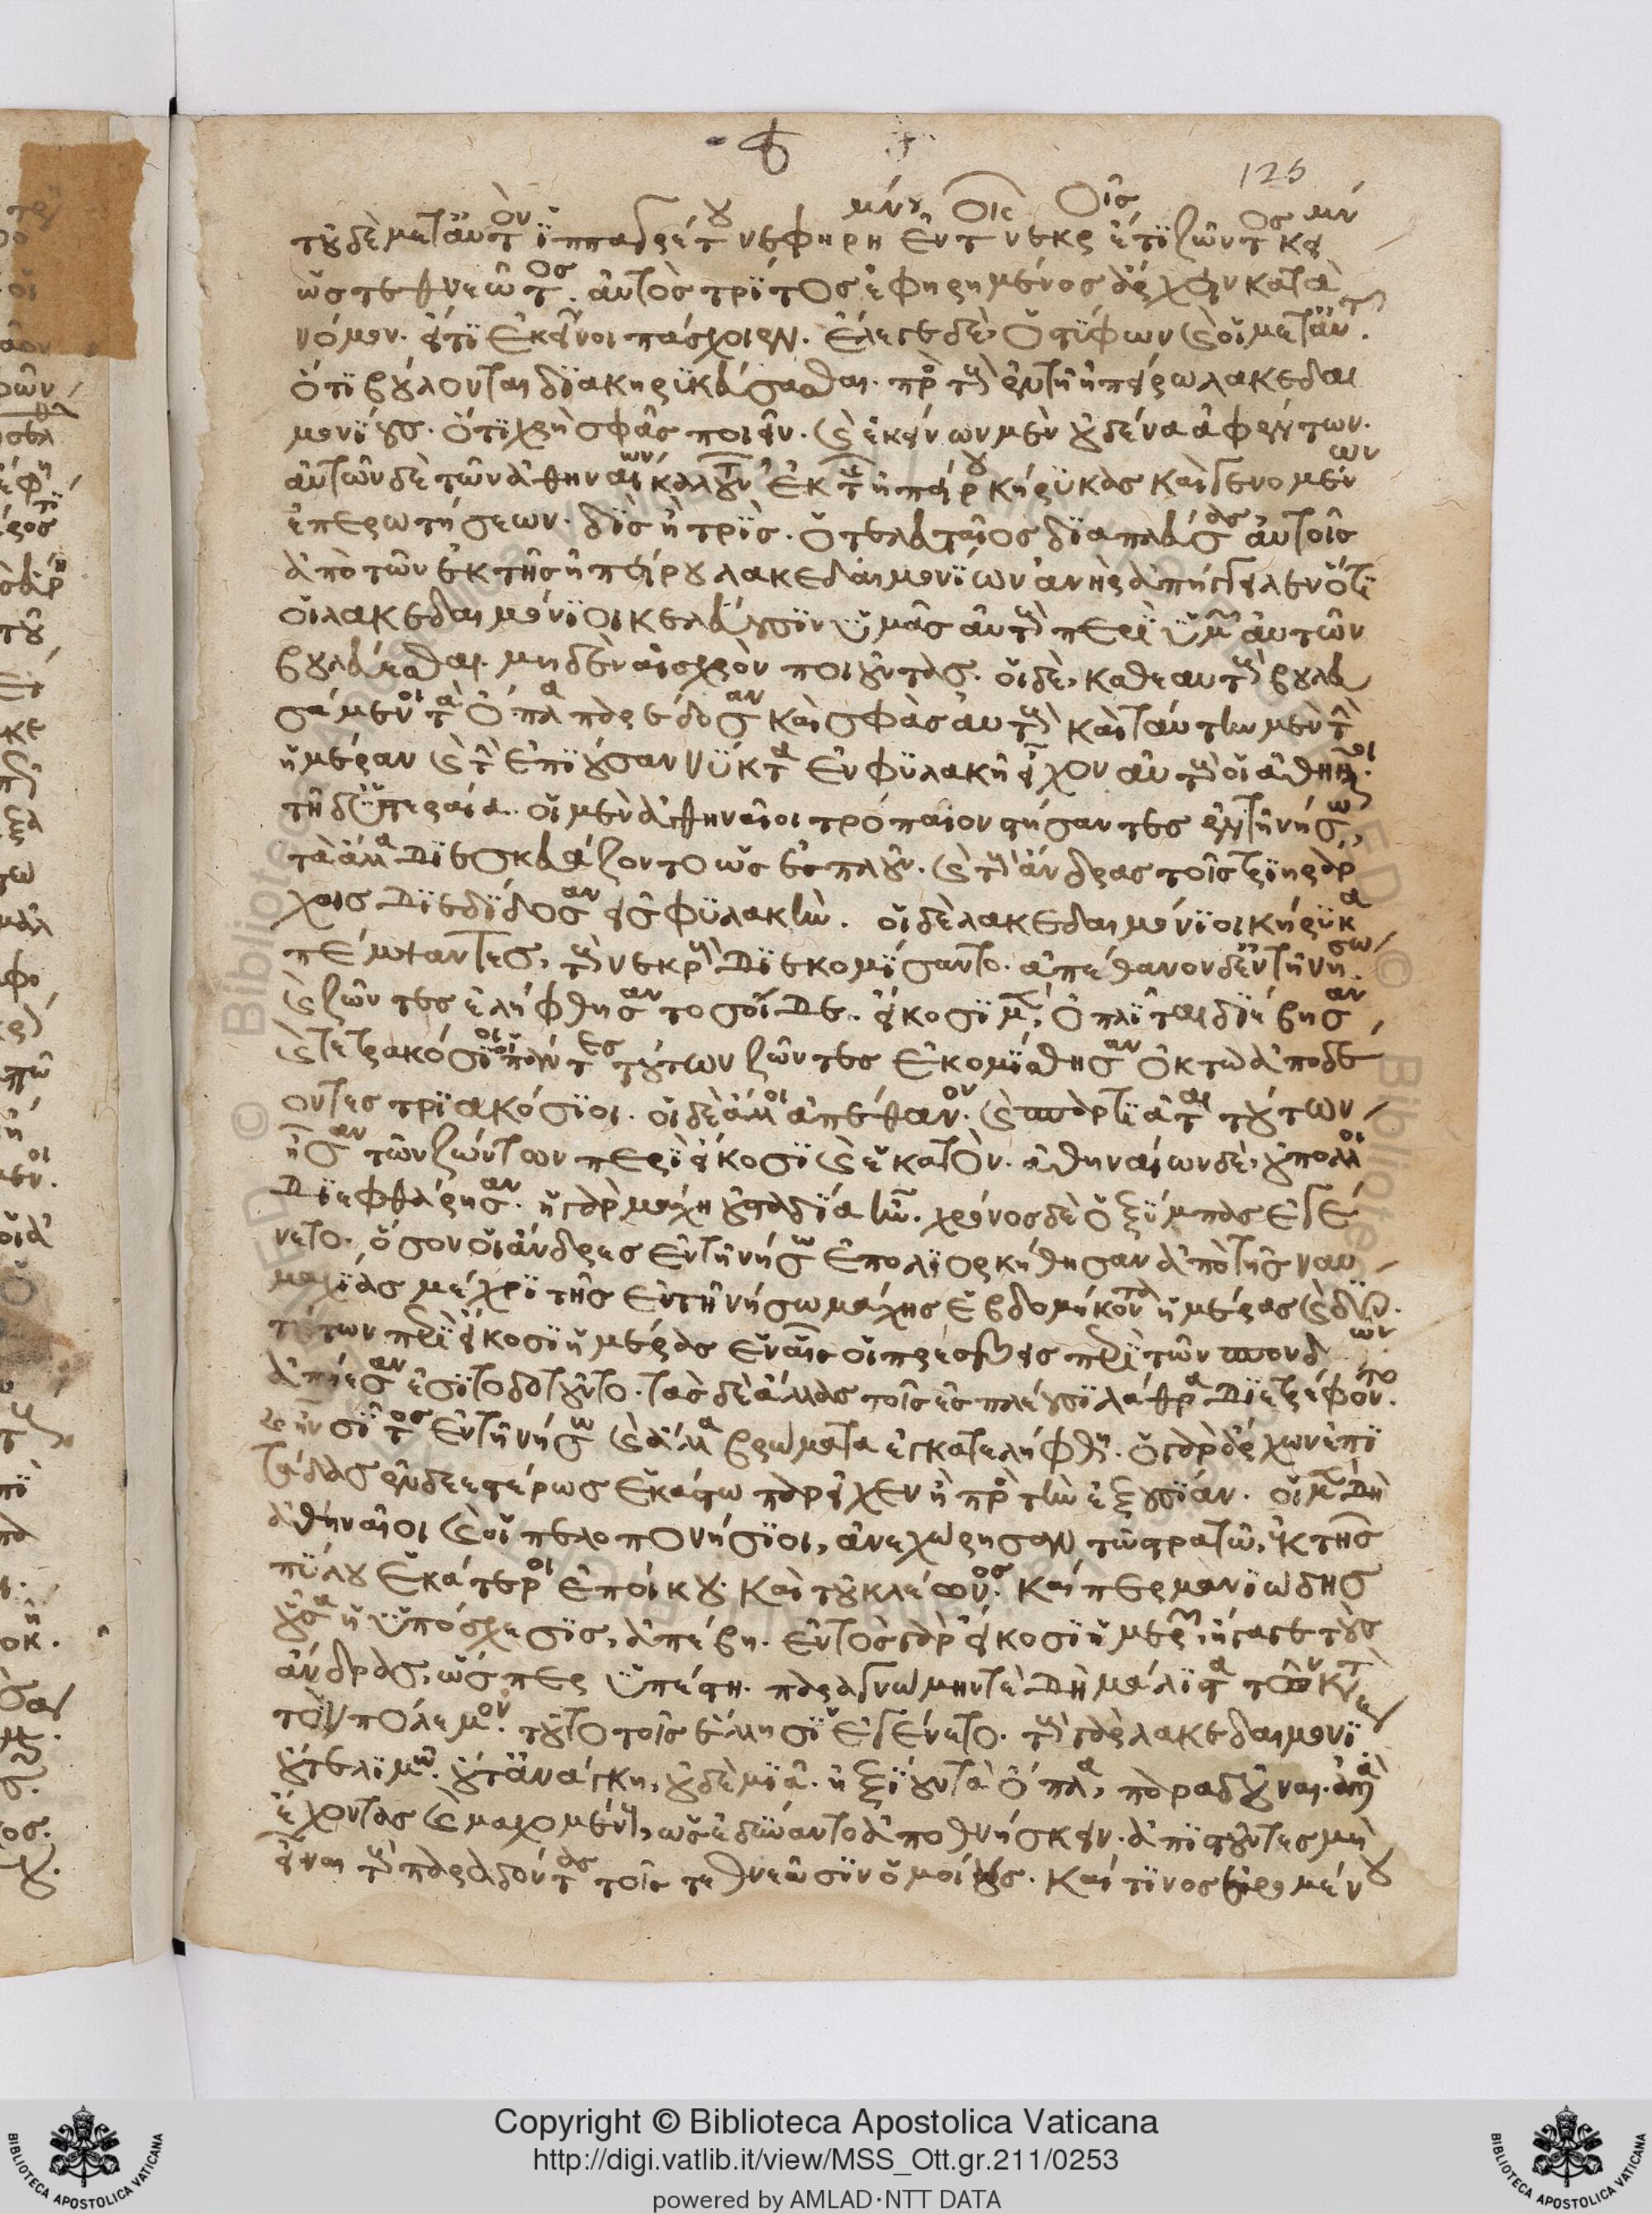 - ϛ
125
τοῦ δὲ μετ' αὐτὸν ἱππαγρέτου νεφηρημένου ἐν τοῖς νεκροῖς ἔτι ζῶντος κειμένου
ὡς τεθνεῶτος. αὐτὸς τρίτος ἐφηρημένος ἄρχειν κατὰ
νόμον. εἴ τι ἐκεῖνοι πάσχοιεν. ἔλεγε δὲ, ὁ στύφων καὶ οἱ μετ' αὐτοῦ.
ὅτι βούλονται διακηρυκεύσασθαι. πρὸς τοὺς ἐν τῆ ἠπείρω λακεδαι
μονίους. ὅτι χρὴ σφᾶς ποιεῖν. καὶ ἐκείνων μὲν οὐδένα ἀφέντων.
αὐτῶν δὲ τῶν ἀθηναίων καλούντων ἐκ τῆς ἠπείρου κήρυκας καὶ γενομένων
ἐπερωτήσεων. δὶς ἢ τρὶς. ὁ τελευταῖος διαπλεύσας αὐτοῖς
ἀπὸ τῶν ἐκ τῆς ἠπείρου λακεδαιμονίων ἀνὴρ ἀπήγγειλεν ὅτι
οἱ λακεδαιμόνιοι κελεύουσιν ὑμᾶς αὐτοὺς περὶ ὑμῶν αὐτῶν
βουλεύεσθαι. μηδὲν αἰσχρὸν ποιοῦντας. οἱ δὲ, καθ' εαυτοὺς βουλευ
σάμενοι τὰ ὅπλα παρέδοσαν καὶ σφᾶς αὐτοὺς καὶ ταύτην μὲν τὴν
ἡμέραν καὶ τὴν ἐπιοῦσαν νύκτα ἐν φυλακῆ εἶχον αὐτοὺς οἱ ἀθηναῖοι.
τῆ δ' ὑστεραία. οἱ μὲν ἀθηναῖοι τρόπαιον στήσαντες ἐν τῆ νήσω,
τὰ ἄλλα διεσκευάζοντο ὡς ἐς πλοῦν. καὶ τοὺς ἄνδρας τοῖς τριηράρ
χοις διεδίδοσαν εἰς φυλακὴν. οἱ δὲ λακεδαιμόνιοι κήρυκα
πέμψαντες, τοὺς νεκροὺς διεκομίσαντο. ἀπέθανον δ' ἐν τῆ νήσω
καὶ ζῶντες ἐλήφθησαν τοσοίδε. εἴκοσι μὲν, ὁπλῖται διέβησαν,
καὶ τετρακόσιοι οἱ πάντες τούτων ζῶντες ἐκομίσθησαν ὀκτὼ ἀποδέ
οντες τριακόσιοι. οἱ δὲ ἄλλοι ἀπέθανον. καὶ σπαρτιᾶται τούτων
ἦσαν τῶν ζώντων περὶ εἴκοσι καὶ ἑκατὸν. ἀθηναίων δὲ, οὐ πολλοὶ
διεφθάρησαν. ἡ γὰρ μάχη οὐ σταδία ἦν. χρόνος δὲ ὁ ξύμπας ἐγέ
νετο. ὅσον οἱ ἄνδρες ἐν τῆ νήσω ἐπολιορκήθησαν ἀπὸ τῆς ναυ
μαχίας μέχρι τῆς ἐν τῆ νήσω μάχης ἑβδομήκοντα ἡμέρας καὶ δύο.
τούτων περὶ εἴκοσι ἡμέρας ἐν αἷς οἱ πρέσβεις περὶ τῶν σπονδῶν
ἀπήεσαν ἐσιτοδοτοῦντο. τὰς δὲ ἄλλας τοῖς ἐσπλέουσι λάθρα διετρέφοντο.
καὶ ἦν σῖτος ἐν τῆ νήσω καὶ ἄλλα βρώματα ἐγκατελήφθη. ὁ γὰρ ἄρχων ἐπι
τάδας ἐνδεεστέρως ἑκάστω παρεῖχεν ἢ πρὸς τὴν ἐξουσίαν. οἱ μὲν δὴ
ἀθηναῖοι καὶ οἱ πελοπονήσιοι, ἀνεχώρησαν τῶ στρατῶ, ἐκ τῆς
πύλου ἑκάτεροι ἐπ' οἴκου. καὶ τοῦ κλέωνος. καίπερ μανιώδης
οὖσα ἡ ὑπόσχεσις, ἀπέβη. ἐντὸς γὰρ εἴκοσι ἡμερῶν, ἤγαγε τοὺς
ἄνδρας, ὥσπερ ὑπέστη. παρὰ γνώμην τὲ δὴ μάλιστα τῶν κατὰ
τὸν πόλεμον. τοῦτο τοῖς ἕλλησιν ἐγένετο. τοὺς γὰρ λακεδαιμονί
οὔτε λιμῶ. οὔτ' ἀνάγκη, οὐδὲ μιᾶ. ἠξίουν τὰ ὅπλα, παραδοῦναι. ἀλλὰ
ἔχοντας καὶ μαχομένους, ὡς ἐδύναντο ἀποθνήσκειν. ἀπιστοῦντες μὴ
εἶναι τοὺς παραδόντας τοῖς τεθνεῶσιν ὁμοίους. καί τινος ἐρομένου
Copyright © Biblioteca Apostolica Vaticana
http://digi.vatlib.it/view/MSS_Ott.gr.211/0253
powered by AMLAD·NTT DATA
BIBLIOTECA APOSTOLICA VATICANA
BIBLIOTECA APOSTOLICA VATICANA